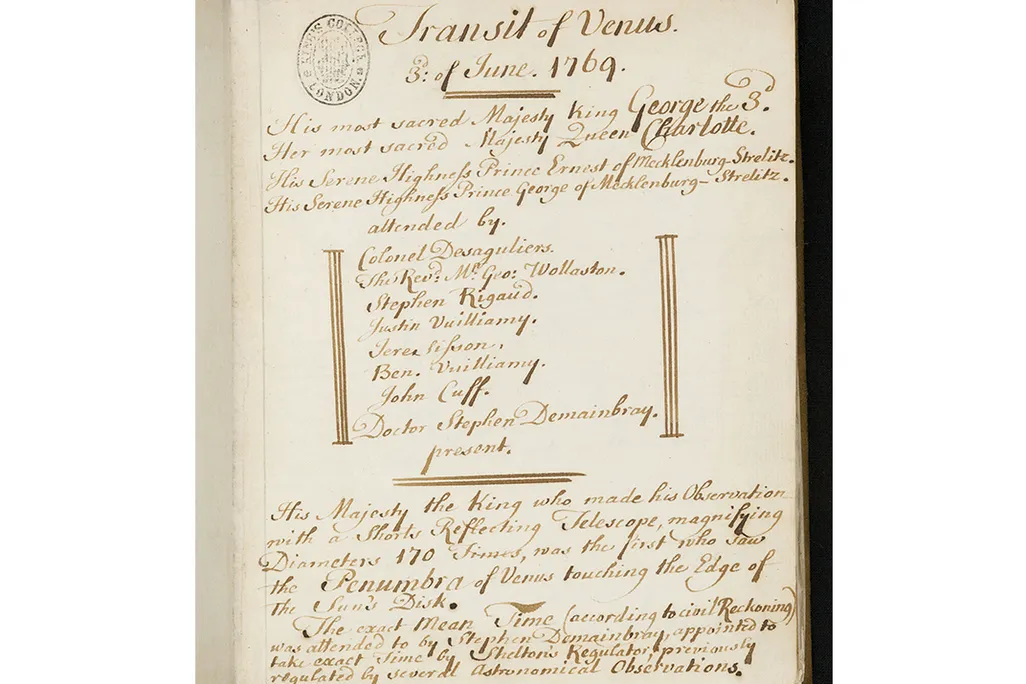 KING'S COLLEGE LONDON
Transit of Venus.
3d: of June. 1769.
His most sacred Majesty King George the 3d.
Her most sacred Majesty Queen Charlotte.
His Serene Highneſs Prince Ernest of Mecklenburg-Strelitz.
His Serene Highneſs Prince George of Mecklenburg-Strelitz.
attended by.
Colonel Desaguliers.
The Revd: Mr. Geo: Wollaston.
Stephen Rigaud.
Justin Vuilliamy.
Jere. Siſson.
Ben. Vuilliamy.
John Cuff.
Doctor Stephen Demainbray.
present.
His Majesty the King who made his Observation
with a Shorts Reflecting Telescope, magnifying
Diameters 170 Times, was the first who saw
the Penumbra of Venus touching the Edge of
the Sun's Disk.
The exact Mean Time (according to civil Reckoning)
was attended to by Stephen Demainbray, appointed to
take exact Time by Shelton's Regulator, previously
regulated by several Astronomical Observations.